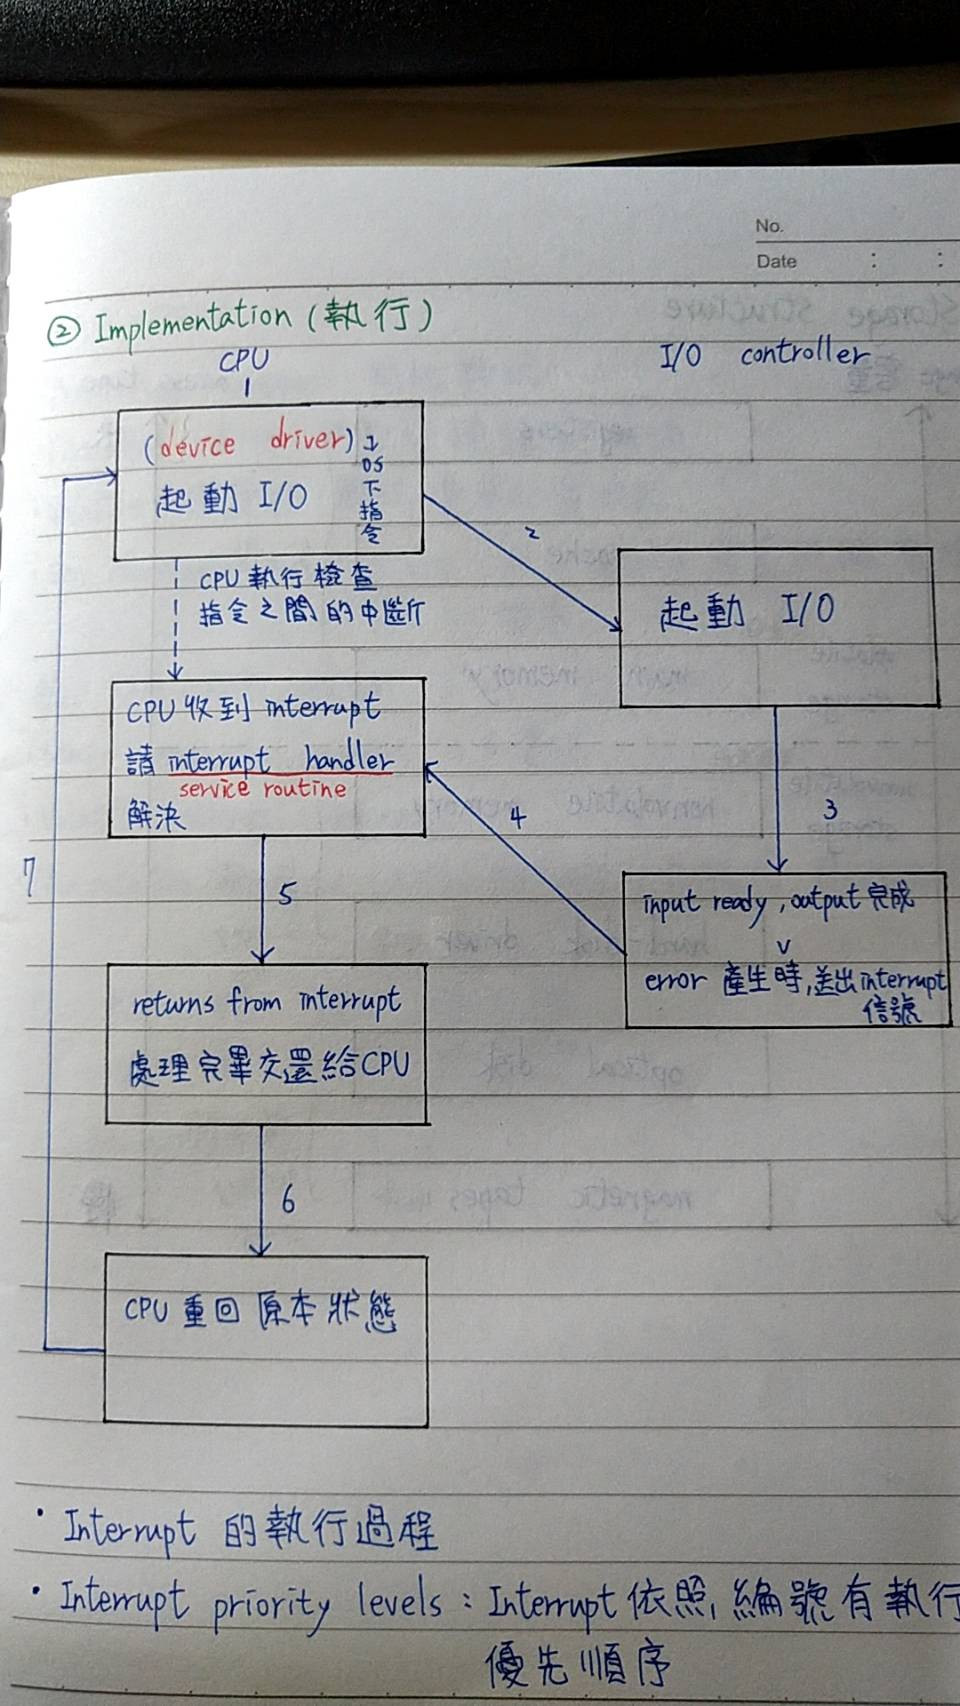 No.
Date : :
② Implementation (執行)
CPU
1
I/O controller
(device driver)
起動 I/O
OS
下
指
令
2
CPU 執行檢查
指令之間的中斷
起動 I/O
CPU 收到 interrupt
請 interrupt handler
service routine
解決
3
4
input ready, output 完成
error 產生時, 送出 interrupt
信號
5
returns from interrupt
處理完畢交還給CPU
6
CPU 重回 原本狀態
7
· Interrupt 的執行過程
· Interrupt priority levels : Interrupt 依照, 編號有執行
優先順序